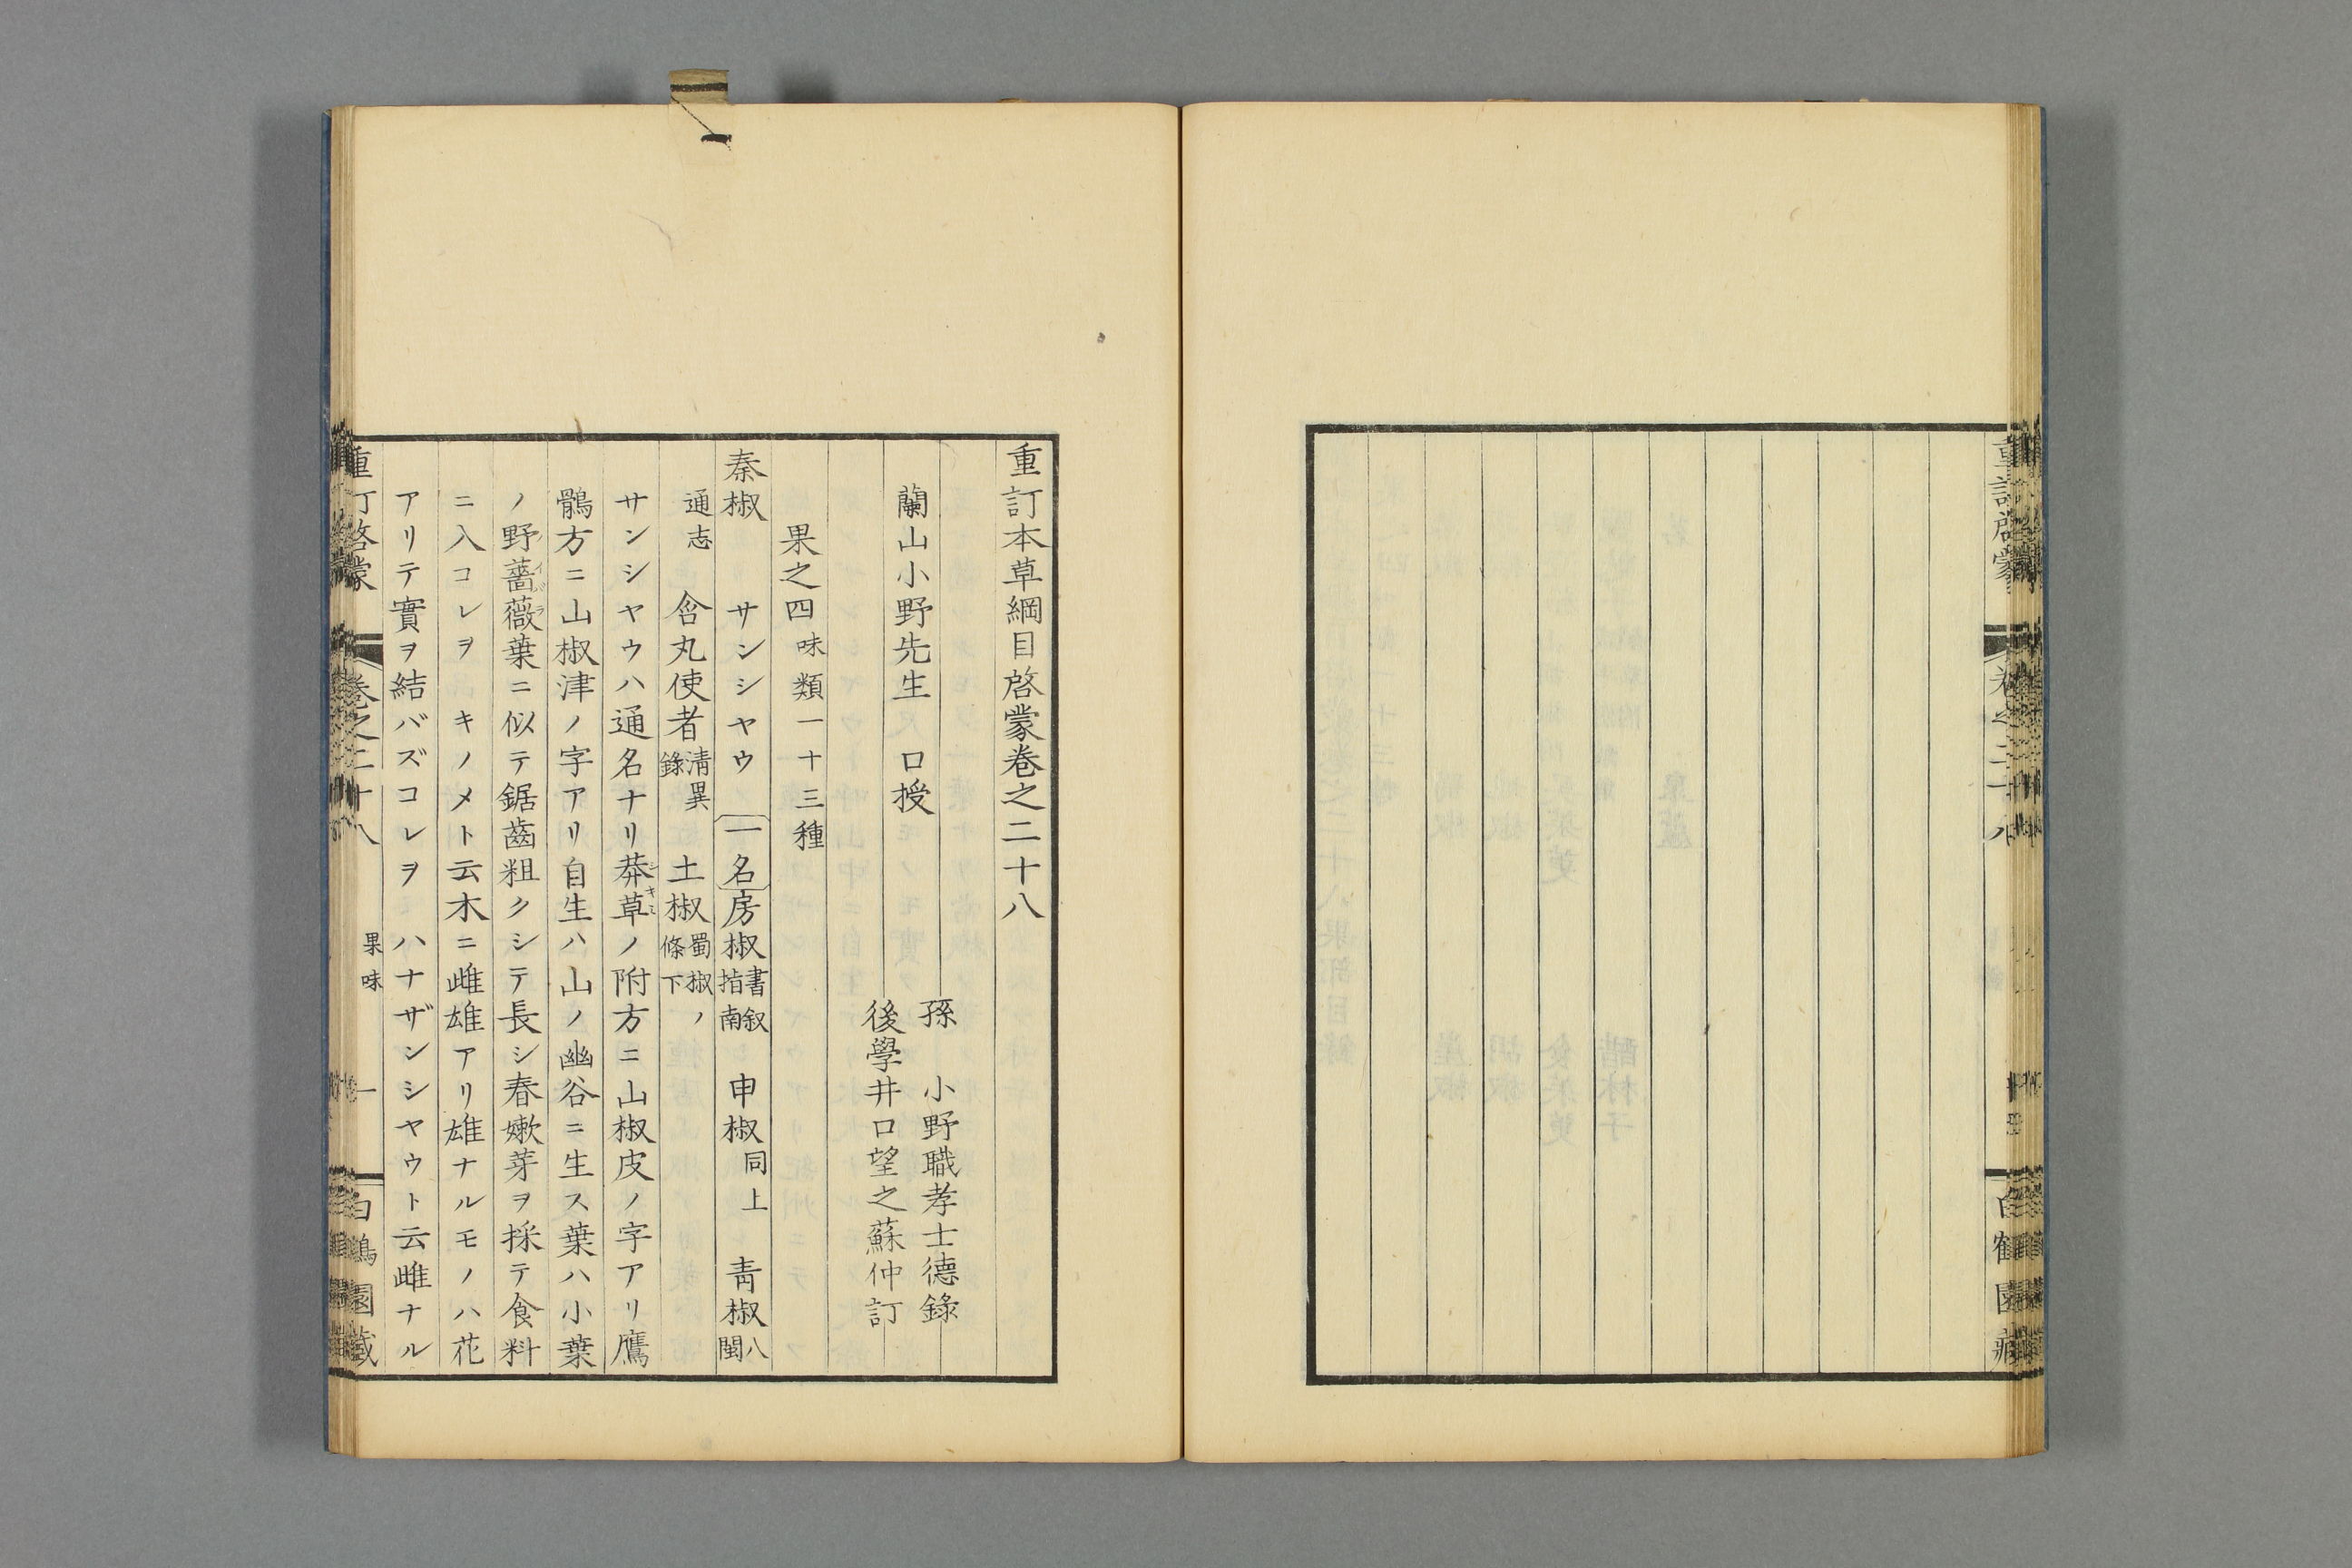 重訂本草綱目啓蒙卷之二十八
蘭山小野先生 口授
孫 小野職孝士德錄
後學井口望之蘇仲訂
果之四 味類一十三種
秦椒 サンシヤウ 一名 房椒 書叙指南 申椒 同上 青椒 八閩
通志 含丸使者 淸異錄 土椒 蜀椒ノ條下
サンシヤウハ通名ナリ莽草ノ附方ニ山椒皮ノ字アリ鷹
鶻方ニ山椒津ノ字アリ自生ハ山ノ幽谷ニ生ス葉ハ小葉
ノ野薔薇葉ニ似テ鋸齒粗クシテ長シ春嫩芽ヲ採テ食料
ニ入コレヲ キノメト云木ニ雌雄アリ雄ナルモノハ花
アリテ實ヲ結バズコレヲ ハナザンシヤウト云雌ナル
重訂啓蒙 卷之二十八 果味 一 白鶴園藏